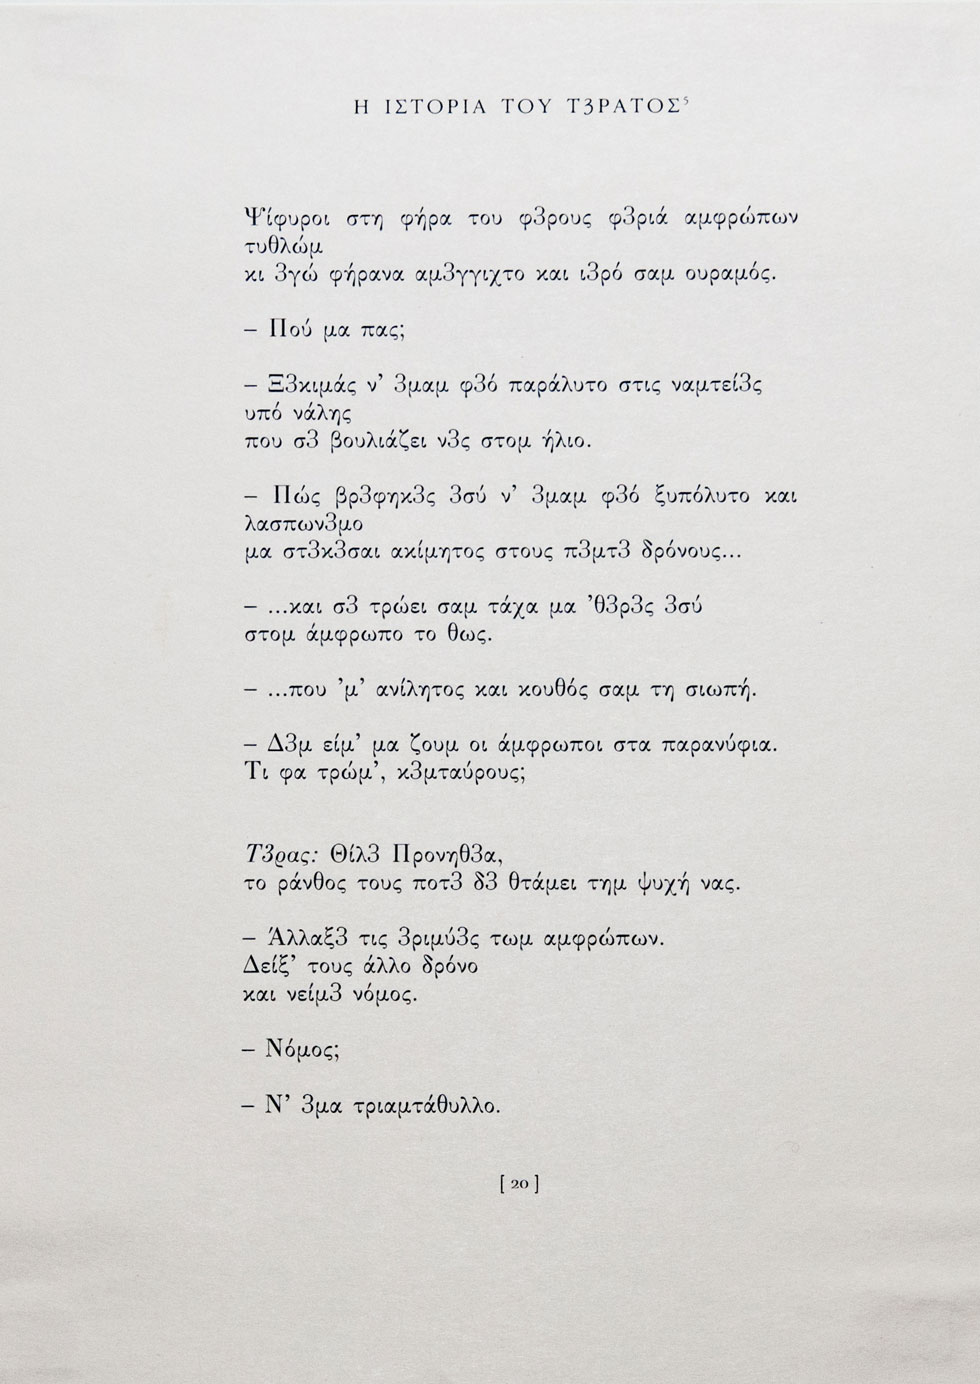 Η ΙΣΤΟΡΙΑ ΤΟΥ Τ3ΡΑΤΟΣ⁵
Ψίφυροι στη φήρα του φ3ρους φ3ριά αμφρώπων
τυθλώμ
κι 3γώ φήρανα αμ3γγιχτο και ι3ρό σαμ ουραμός.
– Πού μα πας;
– Ξ3κιμάς ν’ 3μαμ φ3ό παράλυτο στις ναμτεί3ς
υπό νάλης
που σ3 βουλιάζει ν3ς στομ ήλιο.
– Πώς βρ3φηκ3ς 3σύ ν’ 3μαμ φ3ό ξυπόλυτο και
λασπων3μο
μα στ3κ3σαι ακίμητος στους π3μτ3 δρόνους...
– ...και σ3 τρώει σαμ τάχα μα ’θ3ρ3ς 3σύ
στομ άμφρωπο το θως.
– ...που ’μ’ ανίλητος και κουθός σαμ τη σιωπή.
– Δ3μ είμ’ μα ζουμ οι άμφρωποι στα παρανύφια.
Τι φα τρώμ’, κ3μταύρους;
Τ3ρας: Θίλ3 Προνηθ3α,
το ράνθος τους ποτ3 δ3 θτάμει τημ ψυχή νας.
– Άλλαξ3 τις 3ριμύ3ς τωμ αμφρώπων.
Δείξ’ τους άλλο δρόνο
και νείμ3 νόμος.
– Νόμος;
– Ν’ 3μα τριαμτάθυλλο.
[ 20 ]